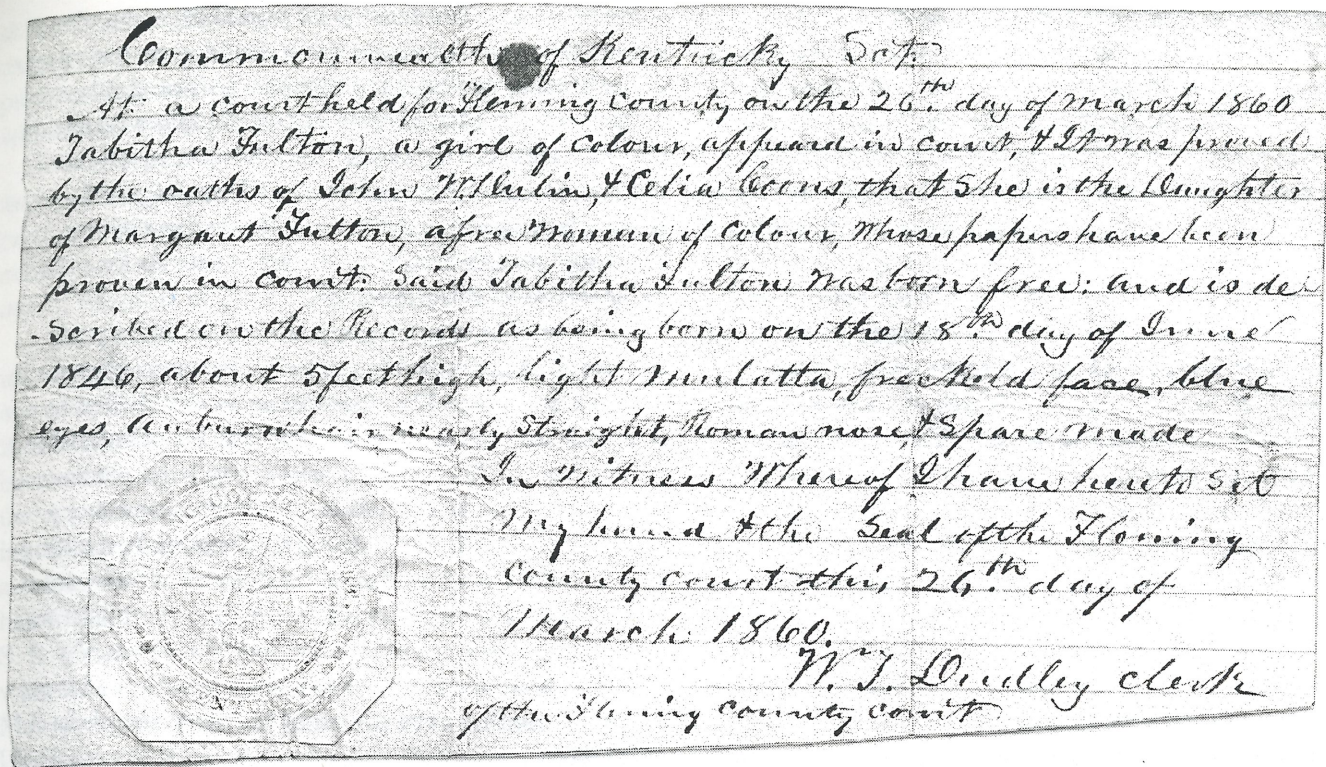 Commonwealth of Kentucky Sct.
At a court held for Fleming County on the 26th. day of March 1860
Tabitha Fulton, a girl of Colour, appeard in court, & It was proved
by the oaths of John W. Dulin, & Celia Coons, that She is the Daughter
of Margaret Fulton, a free Woman of Colour, Whose papers have been
proven in court. Said Tabitha Fulton was born free: and is de
-scribed on the Records as being born on the 18th. day of June
1846, about 5 feet high, light mulatta, freckeld face, blue
eyes, Auburn hair nearly Straight, Roman nose, & Spare made
In Witness Whereof I have hereto Set
My hand & the Seal of the Fleming
County court this 26th. day of
March 1860.
W. T. Dudley clerk
of the Fleming county court